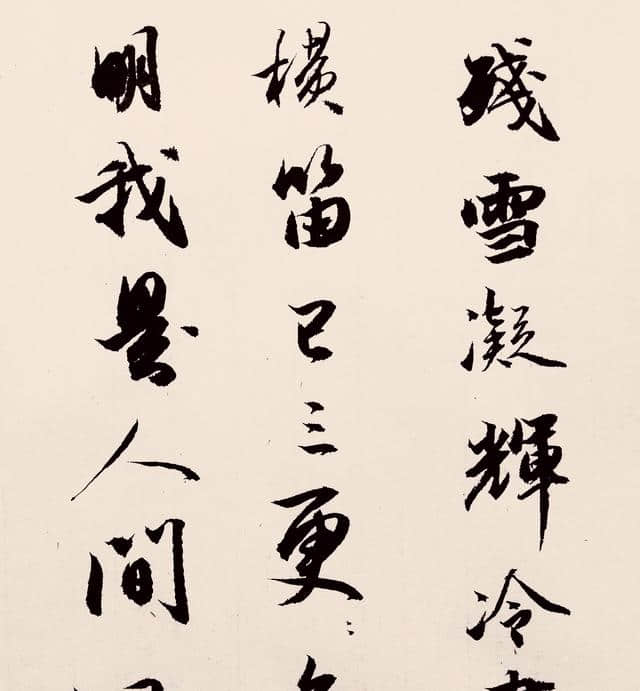 殘雪凝輝冷
橫笛已三更
明我是人間